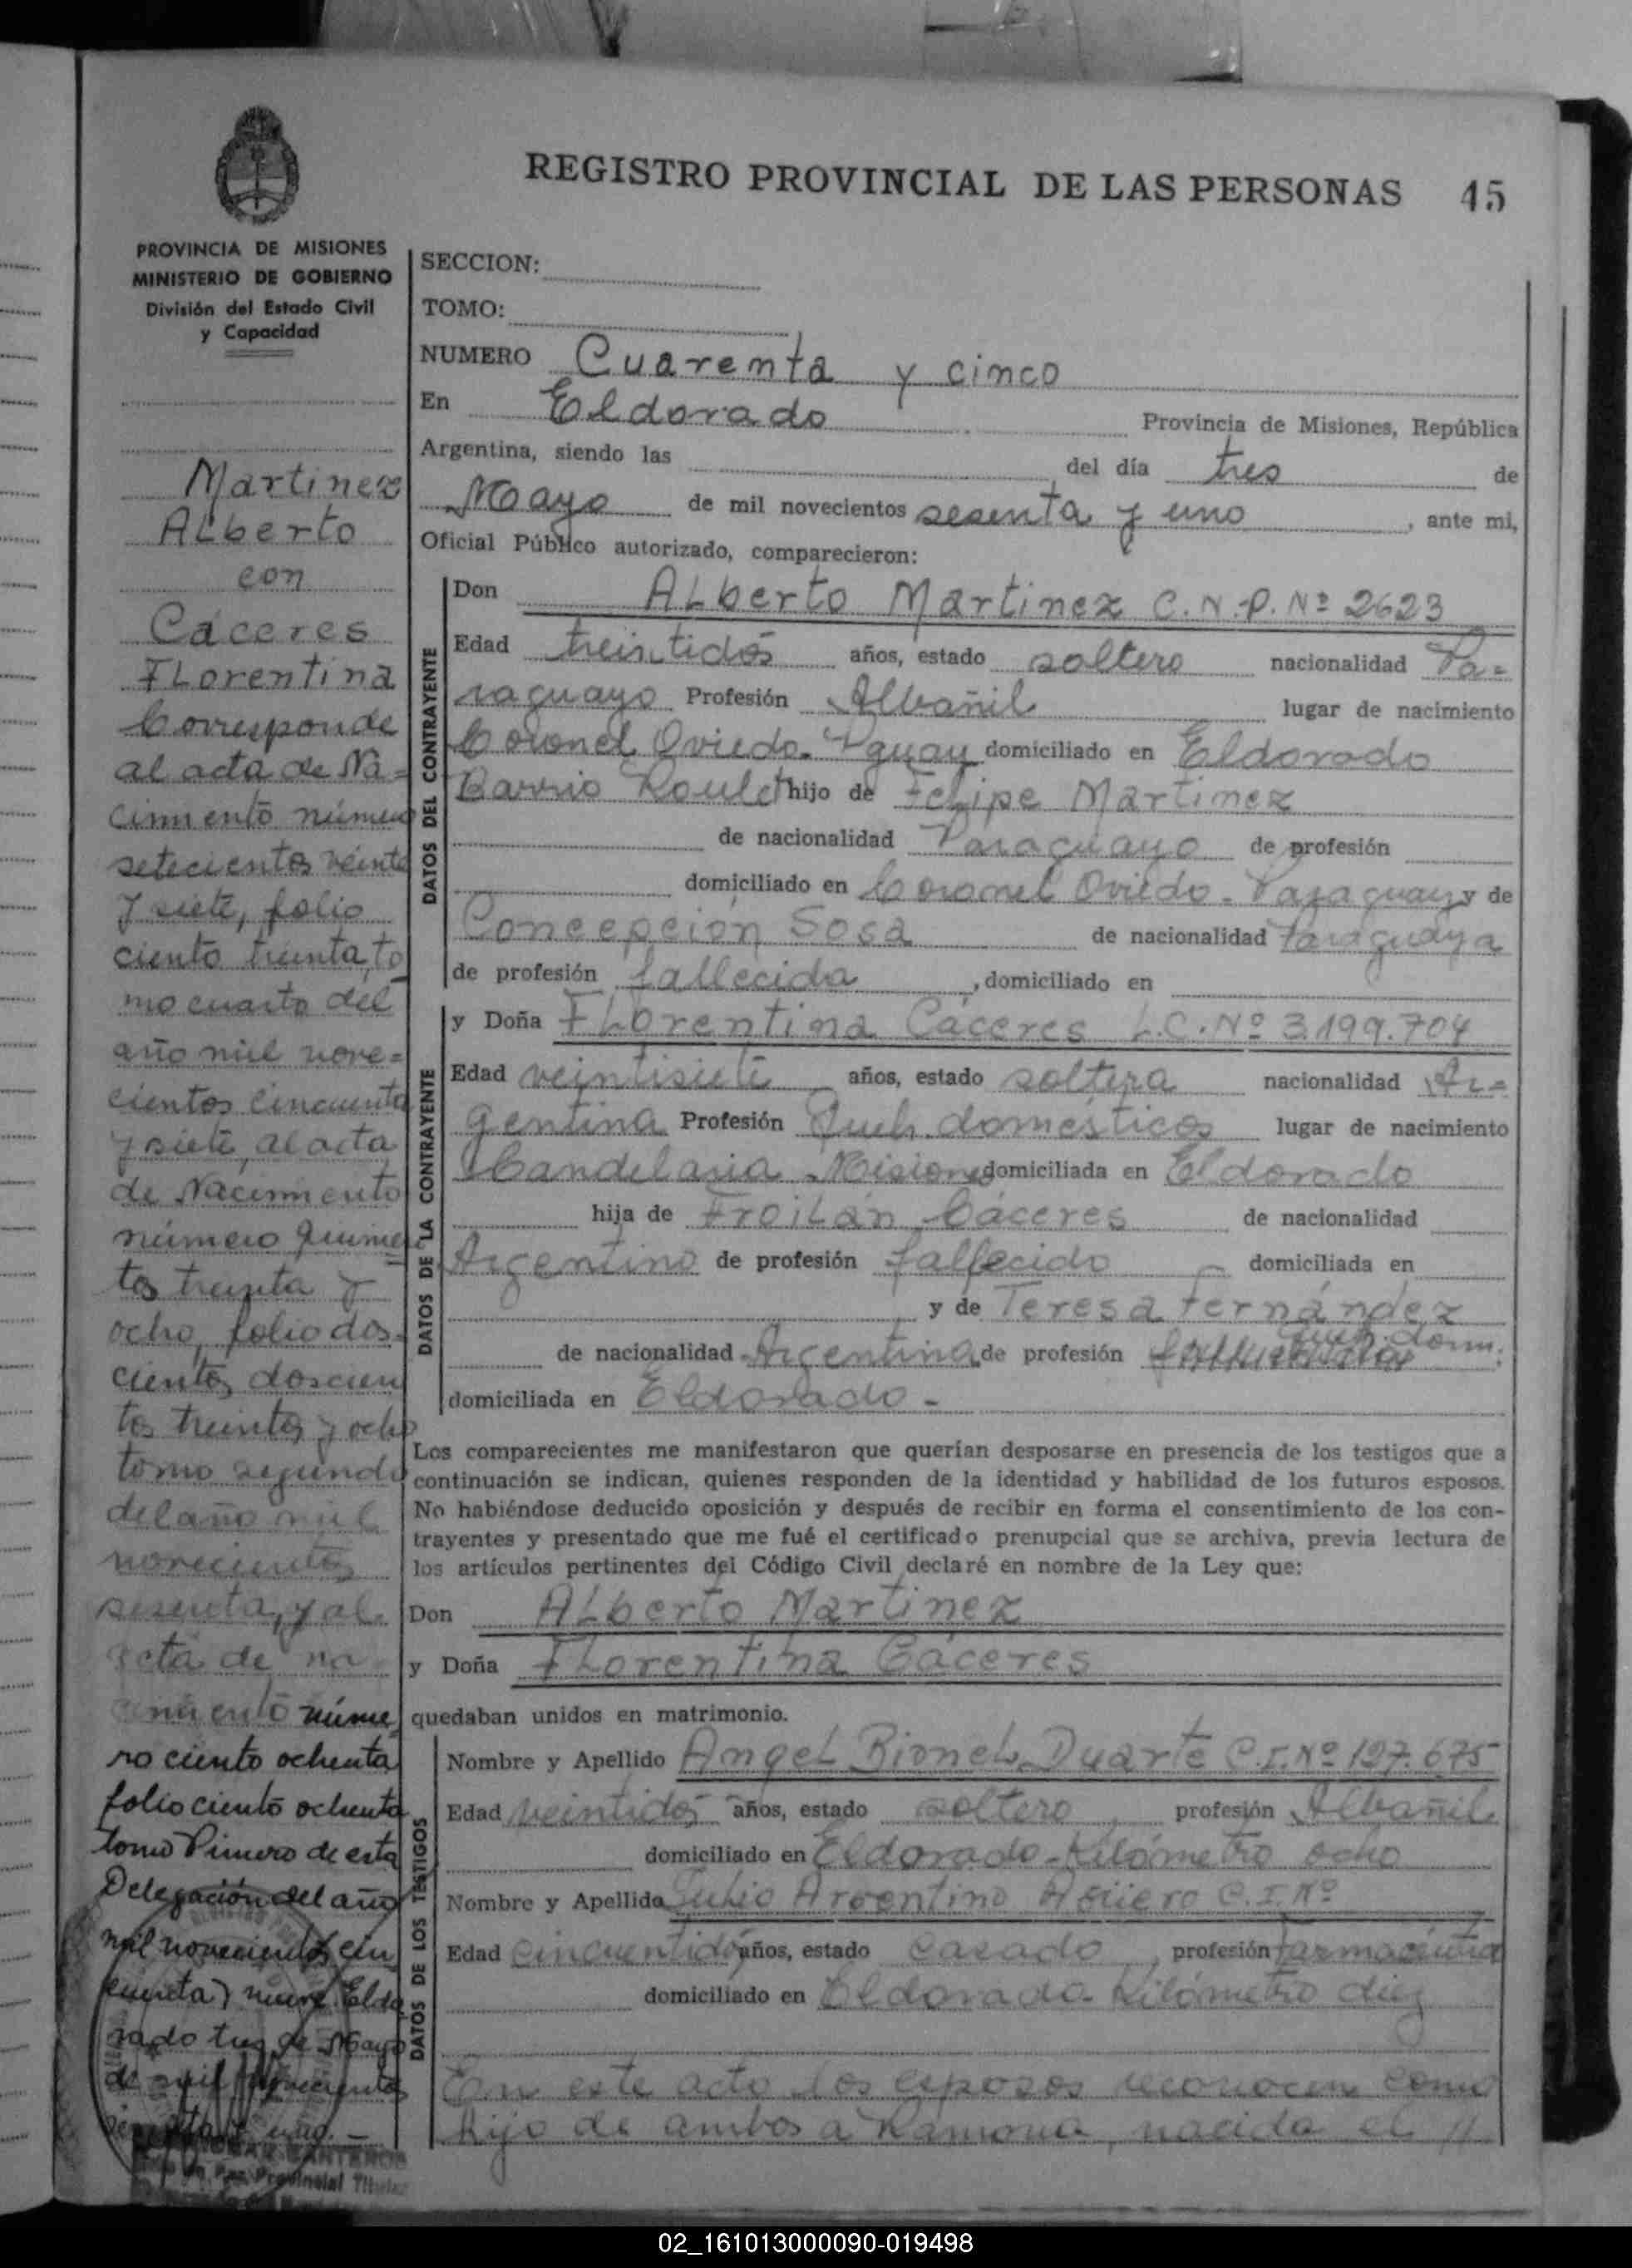 REGISTRO PROVINCIAL DE LAS PERSONAS 45
PROVINCIA DE MISIONES
MINISTERIO DE GOBIERNO
División del Estado Civil
y Capacidad
Martinez
Alberto
con
Cáceres
Florentina
Corresponde
al acta de Na=
cimiento número
setecientos veinte
y siete, folio
ciento treinta, to
mo cuarto del
año mil nove=
cientos cincuenta
y siete, al acta
de Nacimiento
número quinien
tos treinta y
ocho, folio dos
cientos doscien
tos treinta y ocho
tomo segundo
del año mil
novecientos
sesenta, y al
acta de na
cimiento núme
ro ciento ochenta
folio ciento ochenta
tomo Primero de esta
Delegación del año
mil novecientos cin
cuenta y nueve. Eldo
rado tres de Mayo
de mil novecientos
sesenta y uno. -
Paz Provincial Titular
SECCION:
TOMO:
NUMERO Cuarenta y cinco
En Eldorado Provincia de Misiones, República
Argentina, siendo las del día tres de
Mayo de mil novecientos sesenta y uno, ante mi,
Oficial Público autorizado, comparecieron:
DATOS DEL CONTRAYENTE
Don Alberto Martinez C.N.P. Nº 2623
Edad treintidós años, estado soltero nacionalidad Pa=
raguayo Profesión Albañil lugar de nacimiento
Coronel Oviedo. Pguay domiciliado en Eldorado
Barrio Roulet hijo de Felipe Martinez
de nacionalidad Paraguayo de profesión
domiciliado en Coronel Oviedo - Paraguay y de
Concepción Sosa de nacionalidad Paraguaya
de profesión fallecida, domiciliado en
DATOS DE LA CONTRAYENTE
y Doña Florentina Cáceres L.C. Nº 3.199.704
Edad veintisiete años, estado soltera nacionalidad Ar=
gentina Profesión Queh. domésticos lugar de nacimiento
Candelaria - Misiones domiciliada en Eldorado
hija de Froilán Cáceres de nacionalidad
Argentino de profesión fallecido domiciliada en
y de Teresa Fernández
de nacionalidad Argentina de profesión Queh. dom.
domiciliada en Eldorado -
Los comparecientes me manifestaron que querían desposarse en presencia de los testigos que a
continuación se indican, quienes responden de la identidad y habilidad de los futuros esposos.
No habiéndose deducido oposición y después de recibir en forma el consentimiento de los con-
trayentes y presentado que me fué el certificado prenupcial que se archiva, previa lectura de
los artículos pertinentes del Código Civil declaré en nombre de la Ley que:
Don Alberto Martinez
y Doña Florentina Cáceres
quedaban unidos en matrimonio.
DATOS DE LOS TESTIGOS
Nombre y Apellido Angel Bionel Duarte C.I. Nº 127.675
Edad veintidós años, estado soltero profesión Albañil
domiciliado en Eldorado - Kilómetro ocho
Nombre y Apellido Julio Argentino Agüero C.I. Nº
Edad cincuentidós años, estado casado, profesión Farmacéutico
domiciliado en Eldorado - Kilómetro diez
En este acto los esposos reconocen como
hijo de ambos a Ramona, nacida el 11
02_161013000090-019498